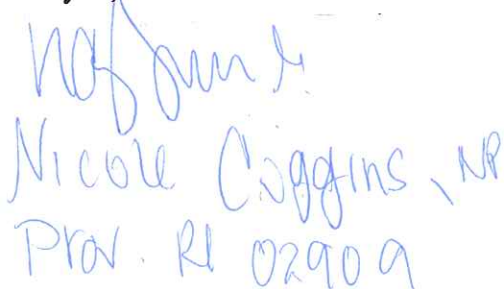 Nicole Coggins, NP
Prov. RI 02909